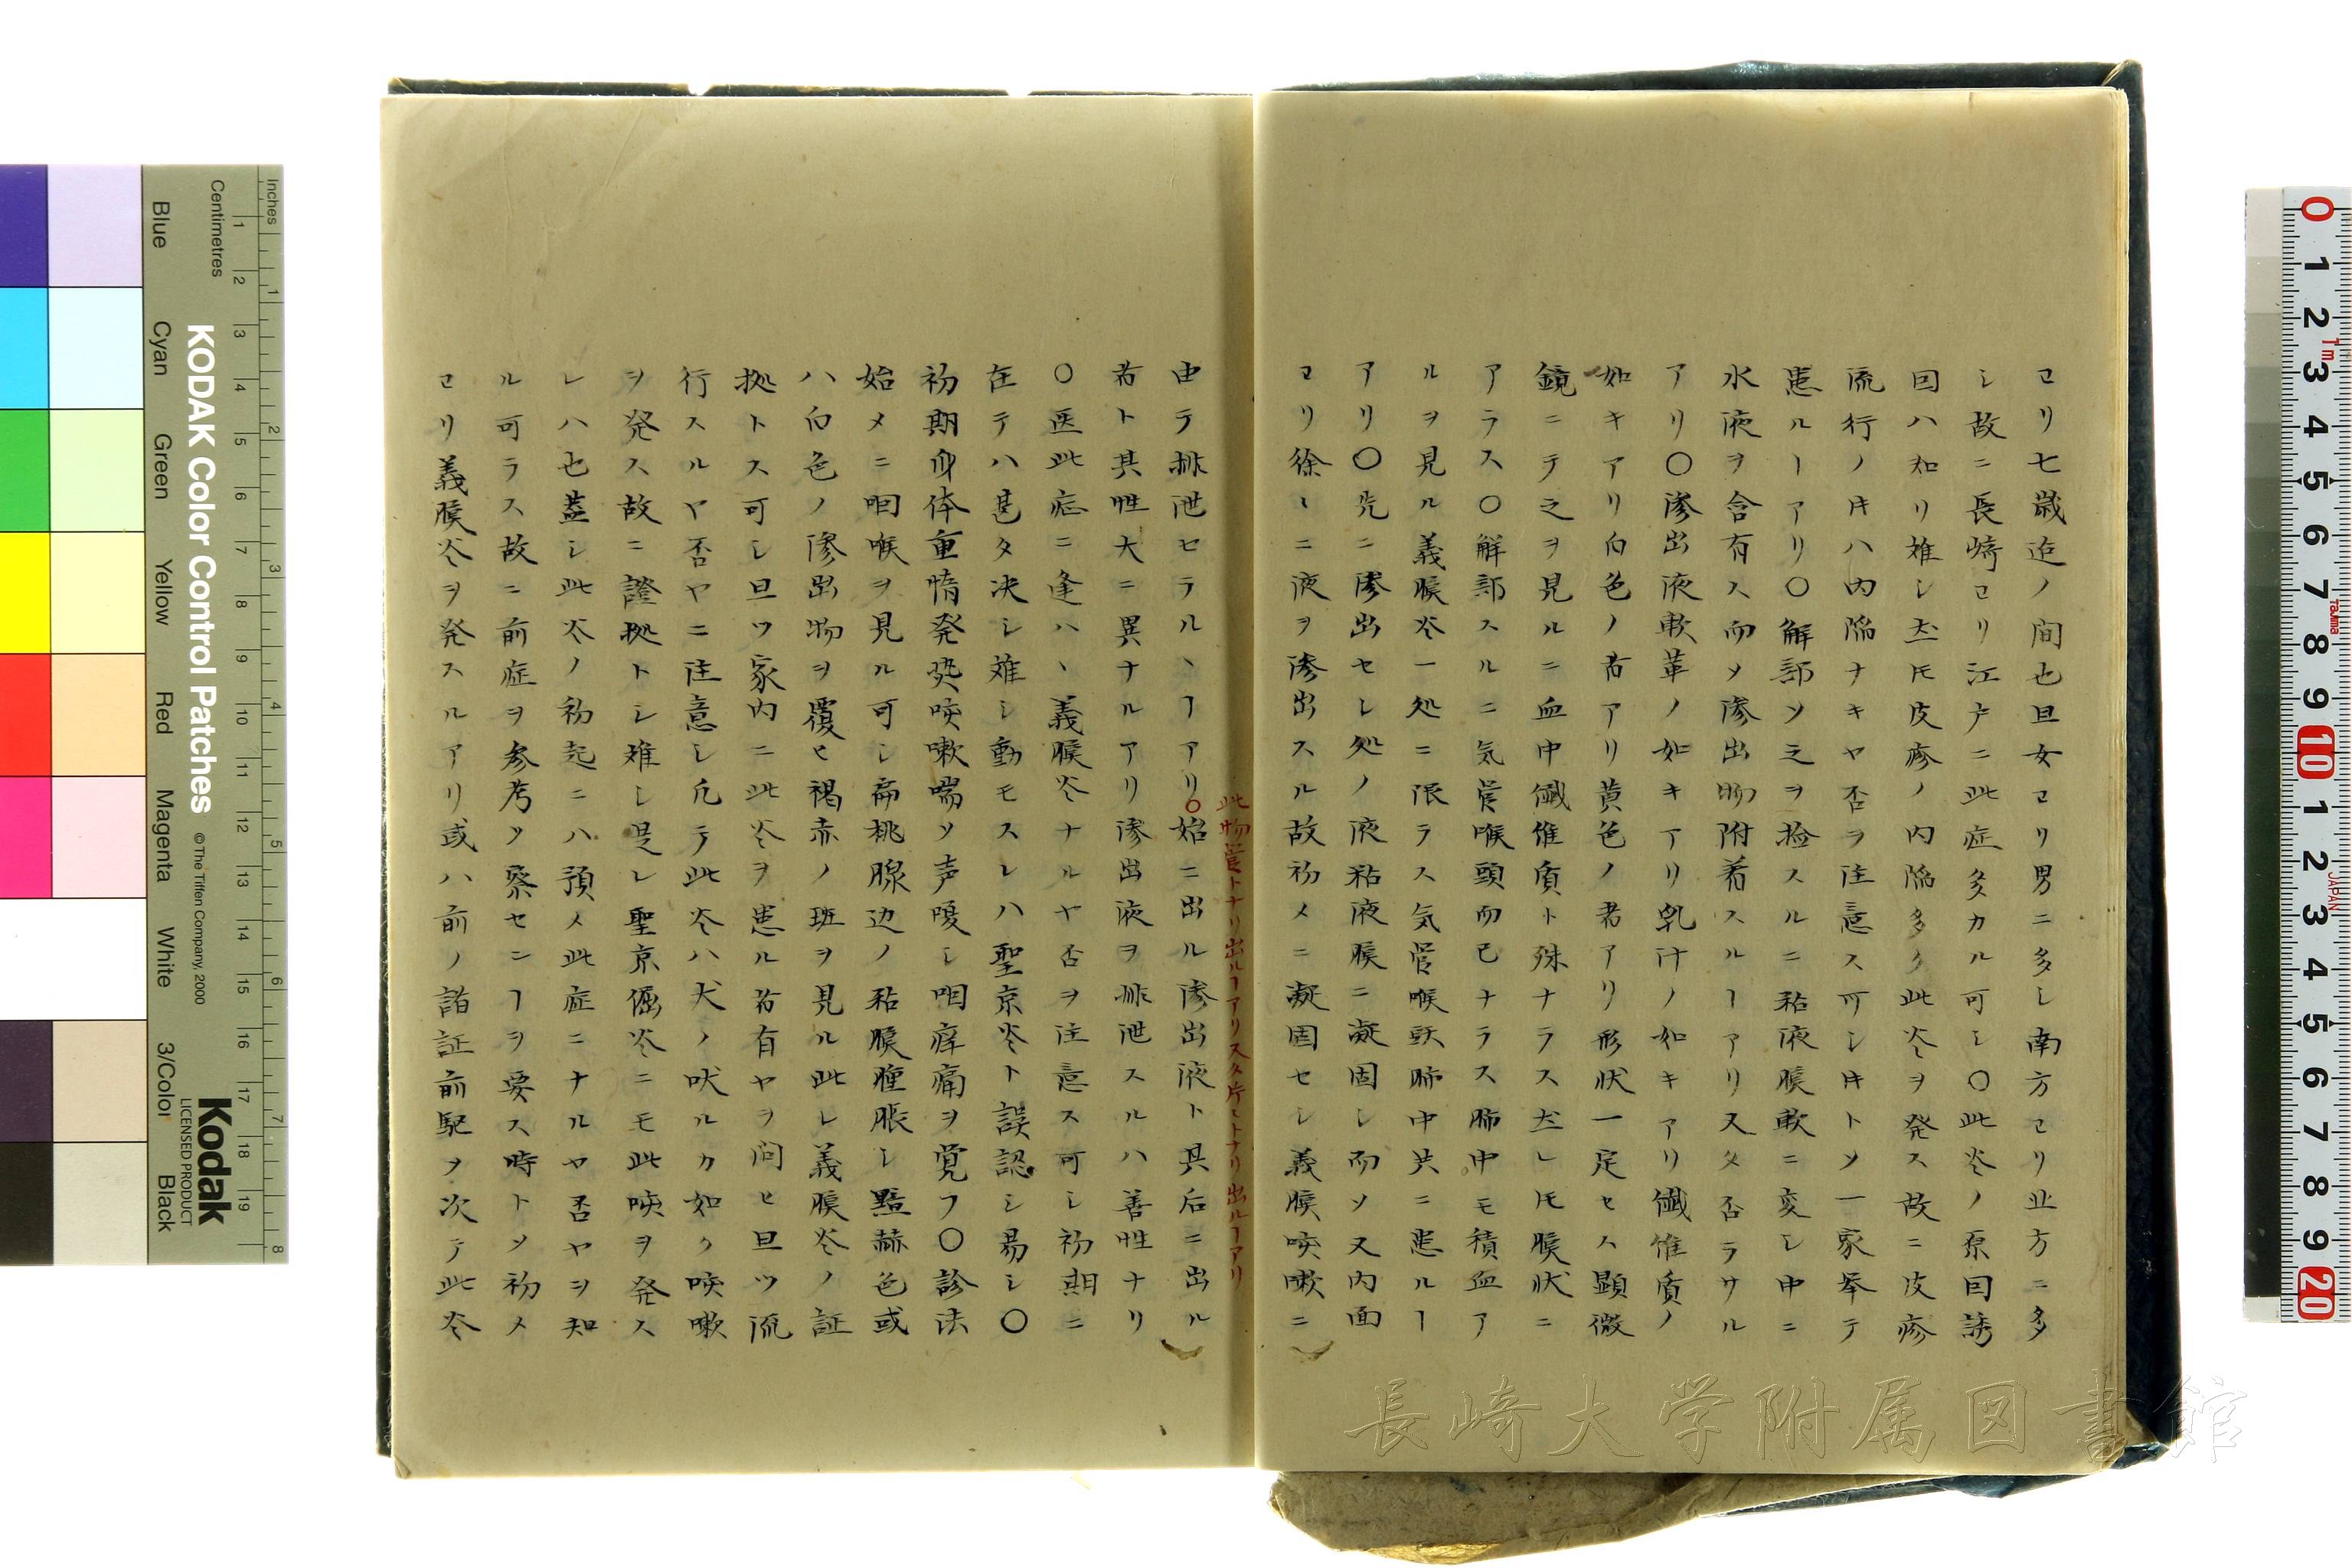 ヨリ七歳迄ノ間也且女ヨリ男ニ多シ南方ヨリ北方ニ多
シ故ニ長崎ヨリ江戸ニ此症多カル可シ〇此炎ノ原因誘
因ハ知リ難シ𪜈皮疹ノ内陥多ク此炎ヲ発ス故ニ皮疹
流行ノ𪜈ハ内陥ナキヤ否ヲ注意ス可シ𪜈トメ一家挙テ
患ルヿアリ〇解部メ之ヲ検スルニ粘液膜軟ニ変シ中ニ
水液ヲ含有ス而メ滲出物附着スルヿアリ又タ否ラサル
アリ〇滲出液軟革ノ如キアリ乳汁ノ如キアリ繊維質ノ
如キアリ白色ノ者アリ黄色ノ者アリ形状一定セス顕微
鏡ニテ之ヲ見ルニ血中繊維質ト殊ナラス𪜈膜状ニ
アラス〇解部スルニ気管喉頭而已ナラス肺中モ積血ア
ルヲ見ル義膜炎一処ニ限ラス気管喉頭肺中共ニ患ルヿ
アリ〇先ニ滲出セシ処ノ液粘液膜ニ凝固シ而メ又内面
ヨリ徐々ニ液ヲ滲出スル故初メニ凝固セシ義膜咳嗽ニ
此物管トナリ出ルヿアリ又タ片々トナリ出ルヿアリ
由テ排泄セラルヽヿアリ〇始ニ出ル滲出液ト其后ニ出ル
者ト其性大ニ異ナルアリ滲出液ヲ排泄スルハ善性ナリ
〇医此症ニ逢ハヽ義膜炎ナルヤ否ヲ注意ス可シ初期ニ
在テハ甚タ決シ難シ動モスレハ聖京炎ト誤認シ易シ〇
初期身体重惰発熱咳嗽喘メ声嗄シ咽痒痛ヲ覚フ〇診法
始メニ咽喉ヲ見ル可シ扁桃腺辺ノ粘膜腫脹シ黯赫色或
ハ白色ノ滲出物ヲ覆ヒ褐赤ノ斑ヲ見ル此レ義膜炎ノ証
拠トス可シ且ツ家内ニ此炎ヲ患ル者有ヤヲ問ヒ且ツ流
行スルヤ否ヤニ注意シ凡テ此炎ハ犬ノ吠ルカ如ク咳嗽
ヲ発ス故ニ證拠トシ難シ是レ聖京傴炎ニモ此咳ヲ発ス
レハ也蓋シ此炎ノ初起ニハ預メ此症ニナルヤ否ヤヲ知
ル可ラス故ニ前症ヲ参考メ察センヿヲ要ス時トメ初メ
ヨリ義膜炎ヲ発スルアリ或ハ前ノ諸証前駆ヲ次テ此炎
Inches
Centimetres
KODAK Color Control Patches
© The Tiffen Company, 2000
Kodak
LICENSED PRODUCT
Blue
Cyan
Green
Yellow
Red
Magenta
White
3/Color
Black
長崎大学附属図書館